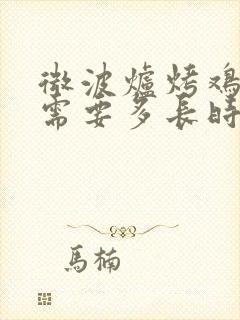 微波爐烤鸡
需要多長時
馬楠